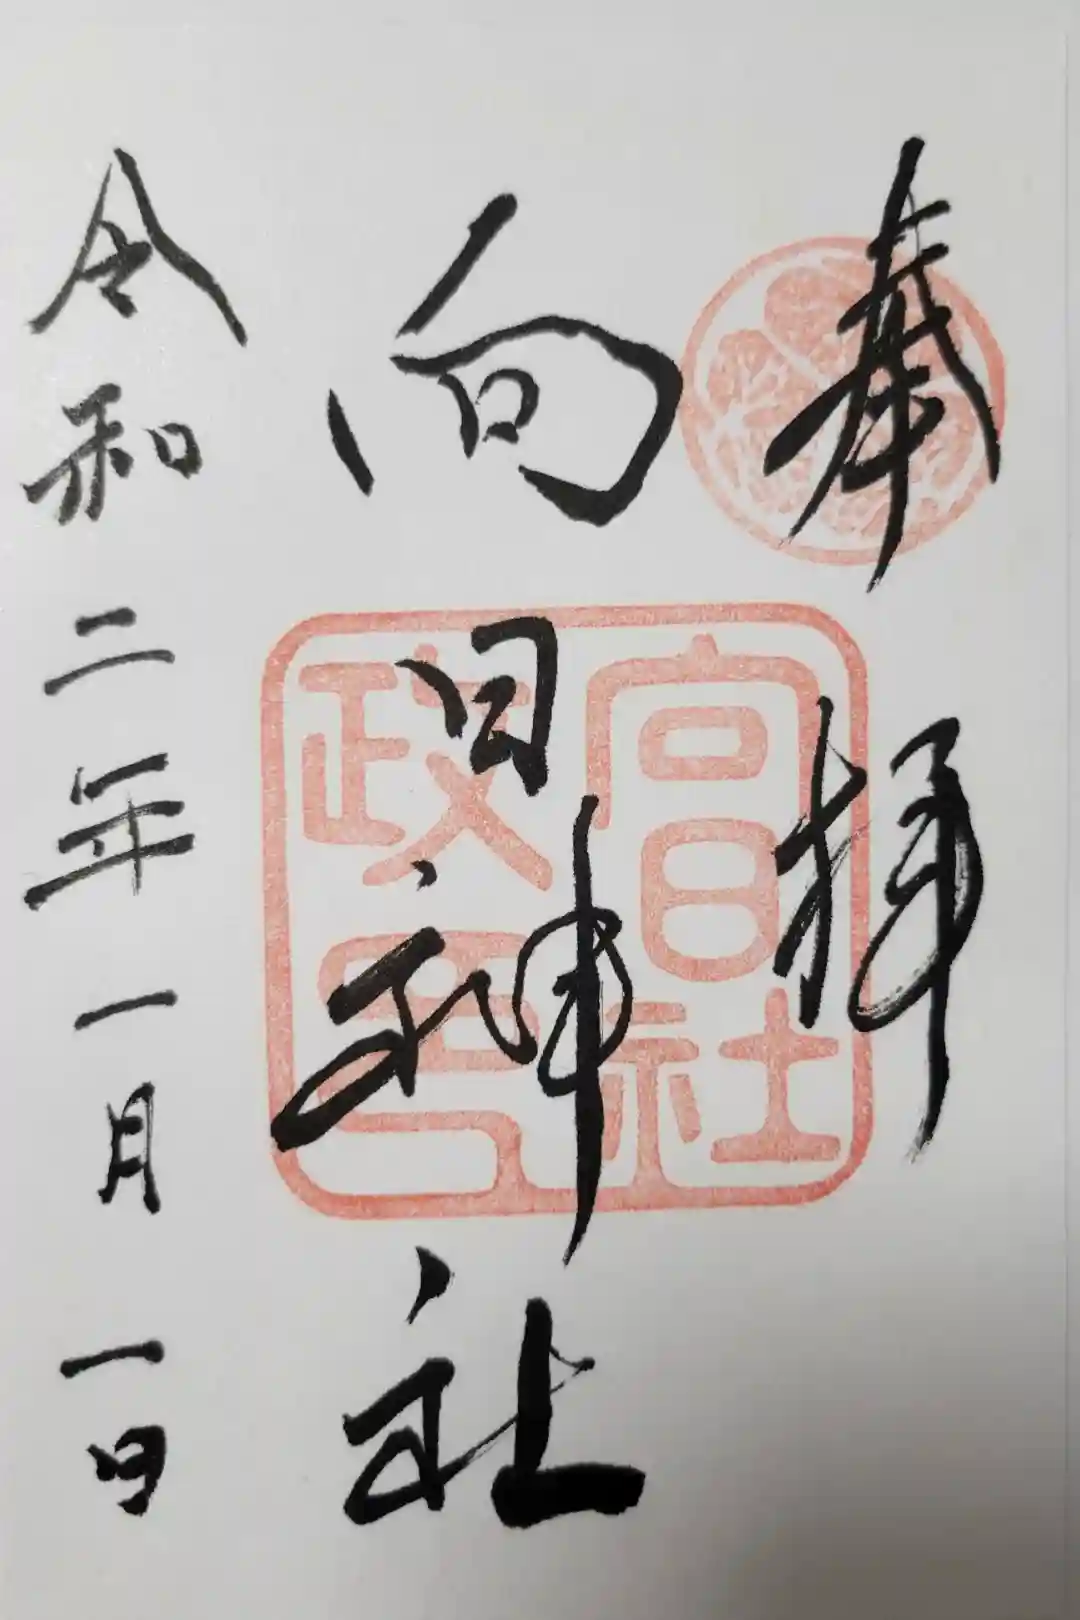 奉拝
向日神社
令和二年一月一日
向日社
政